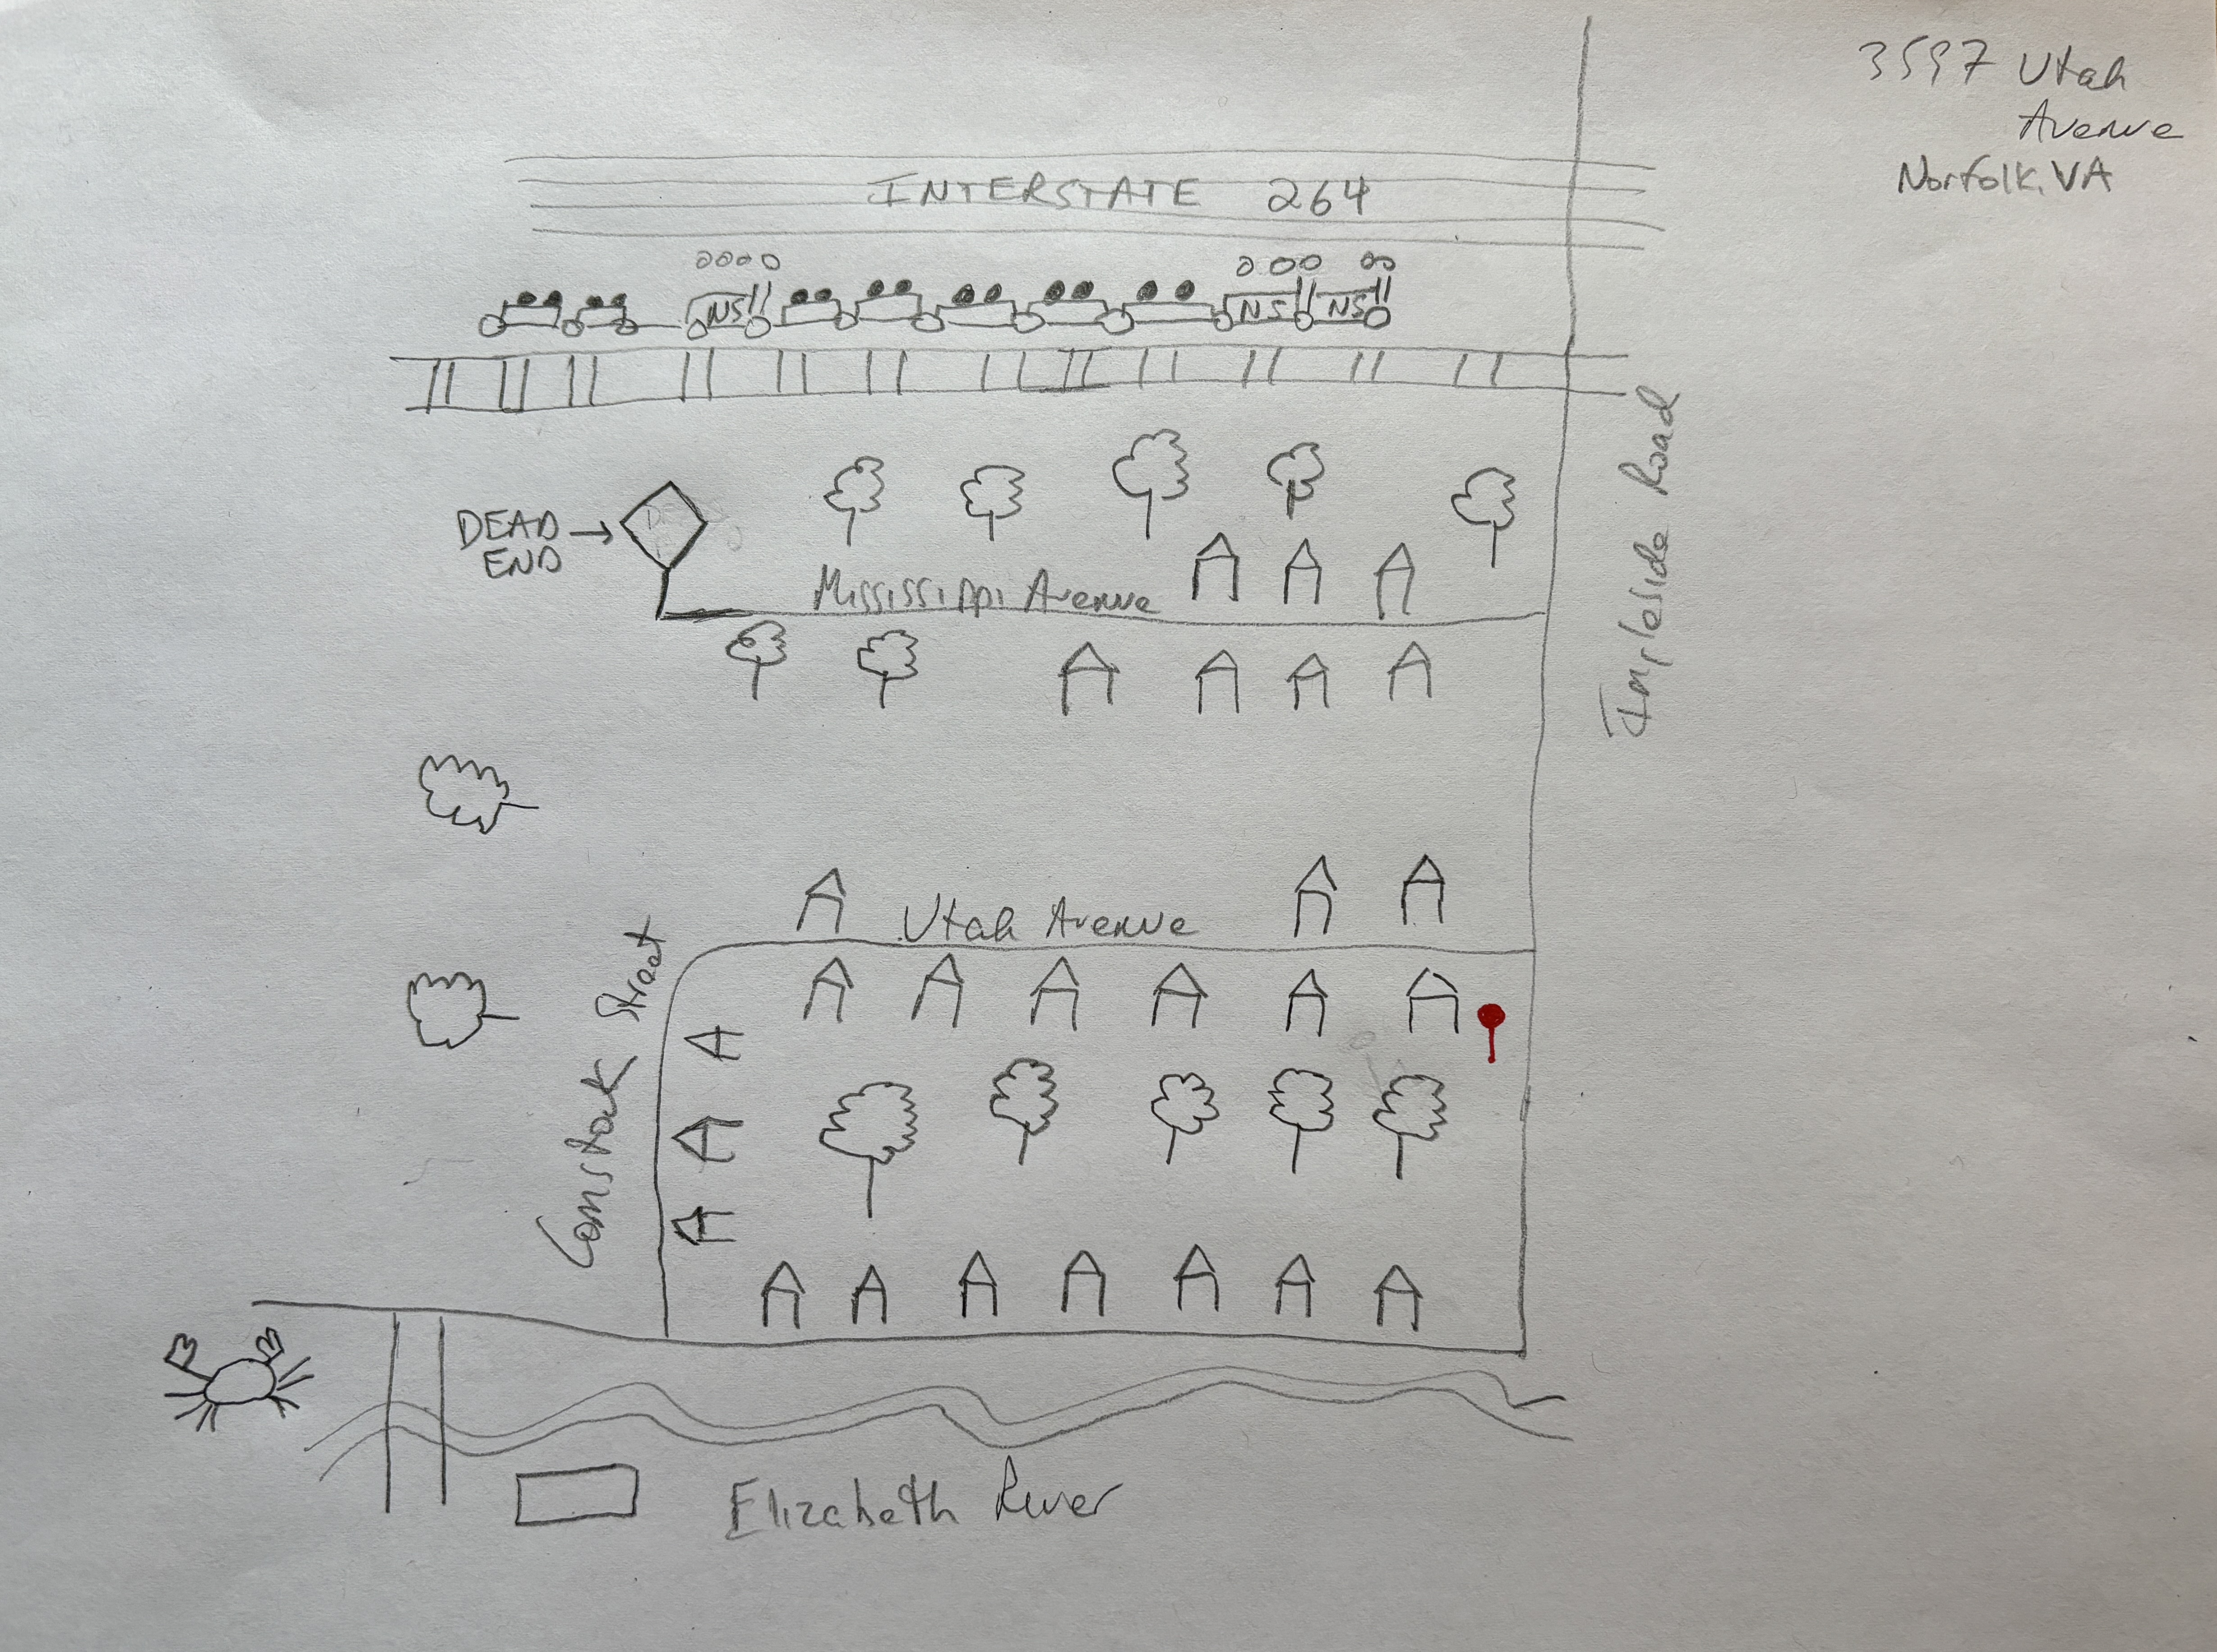 3597 Utah
Avenue
Norfolk, VA
INTERSTATE 264
NS
NS
NS
DEAD
END
Mississippi Avenue
Ingleside Road
Utah Avenue
Comstock Street
Elizabeth River